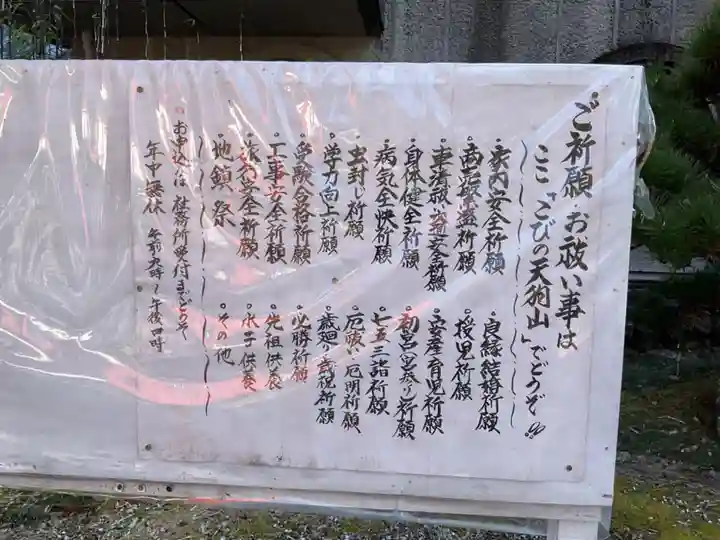 ご祈願・お祓い事は
ここ「とびの天狗山」でどうぞ!!
家内安全祈願
商売繁盛祈願
車清祓い・安全祈願
身体健全祈願
病気全快祈願
虫封じ祈願
学力向上祈願
受験合格祈願
工事安全祈願
旅行安全祈願
地鎮祭
良縁結婚祈願
授児祈願
安産・育児祈願
初宮(宮参り)祈願
七五三詣祈願
厄祓い・厄明祈願
歳廻り・歳祝祈願
必勝祈願
先祖供養
水子供養
その他
お申込は社務所受付までどうぞ
年中無休 午前九時〜午後四時